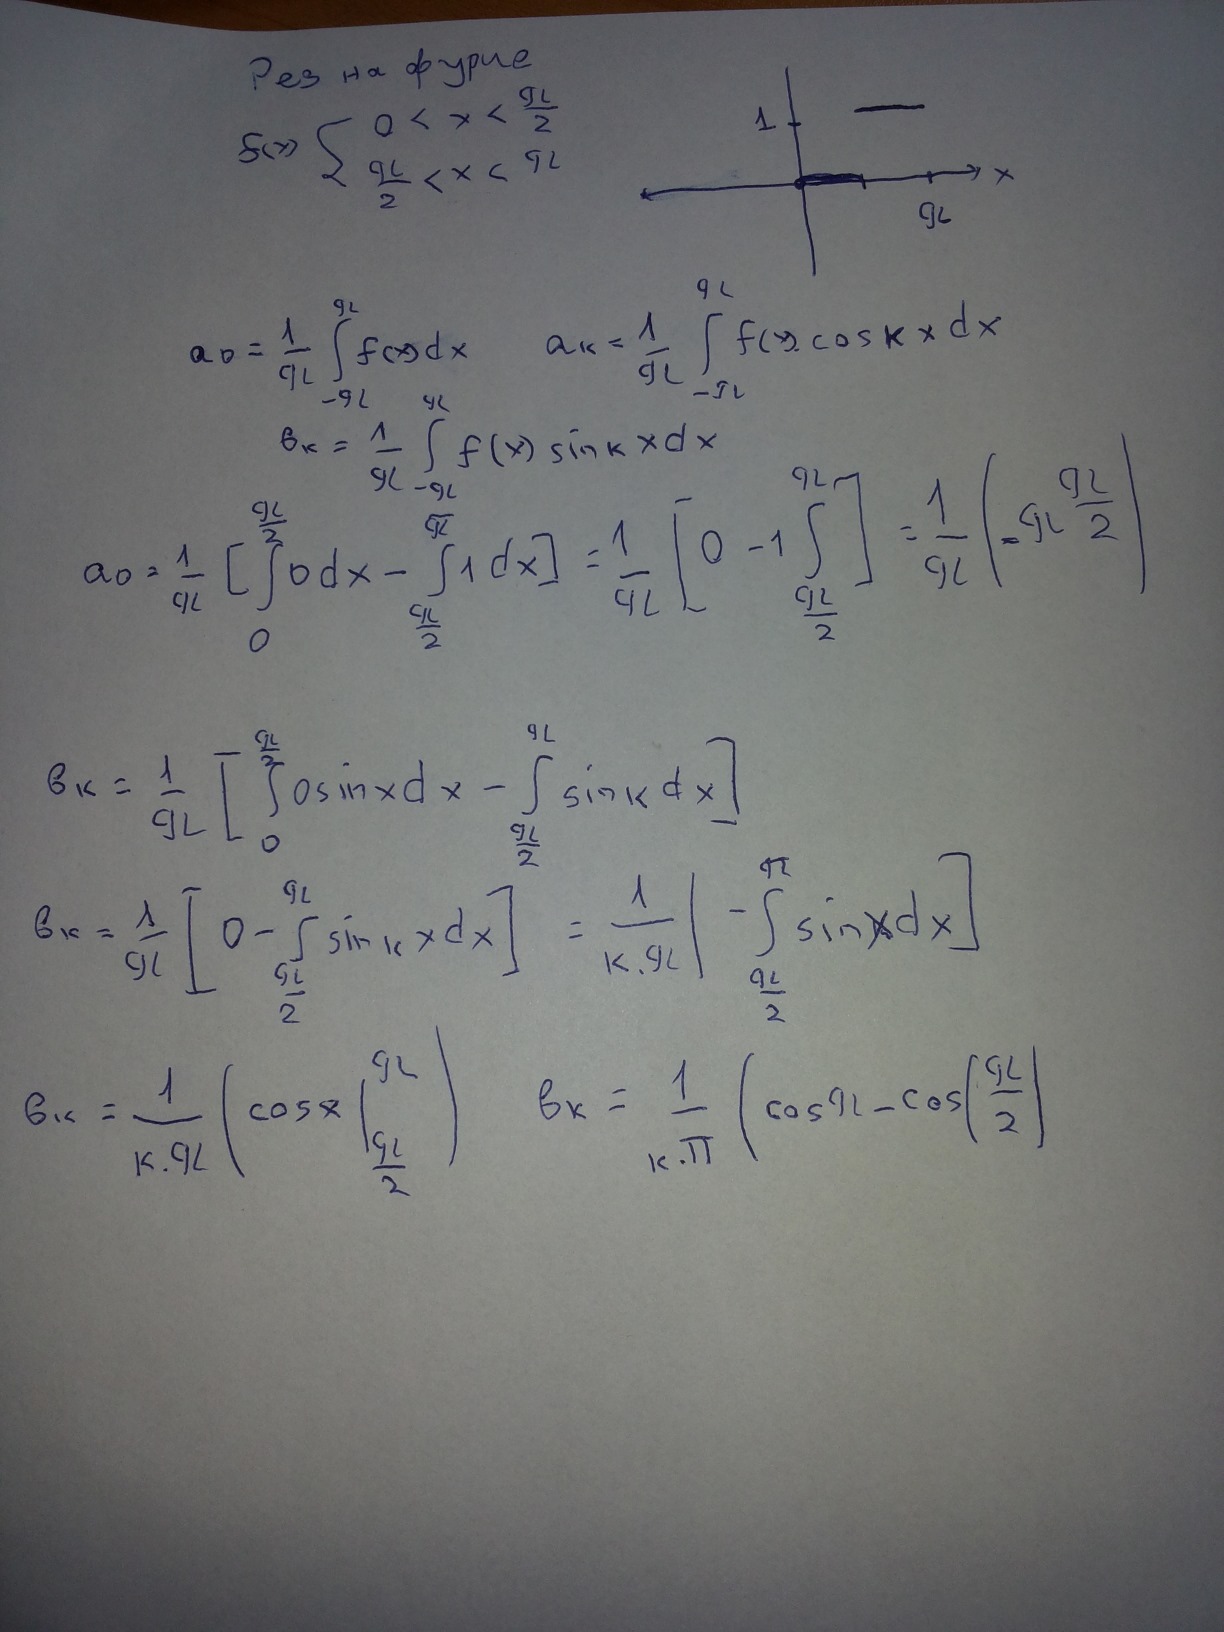 Рез на фурие
f(x) { 0 < x < π/2
π/2 < x < π
1
x
π
a₀ = 1/π ∫_{-π}^{π} f(x) dx aₖ = 1/π ∫_{-π}^{π} f(x). cos k x dx
вₖ = 1/π ∫_{-π}^{π} f(x) sin k x dx
a₀ = 1/π [∫_{0}^{π/2} 0 dx - ∫_{π/2}^{π} 1 dx] = 1/π [0 - 1 ∫_{π/2}^{π}] = 1/π (-π π/2)
вₖ = 1/π [∫_{0}^{π/2} 0 sin x dx - ∫_{π/2}^{π} sin k dx]
вₖ = 1/π [0 - ∫_{π/2}^{π} sin k x dx] = 1/к.π [-∫_{π/2}^{π} sin x dx]
вₖ = 1/к.π (cos x |_{π/2}^{π}) вₖ = 1/к.π (cos π - cos(π/2)